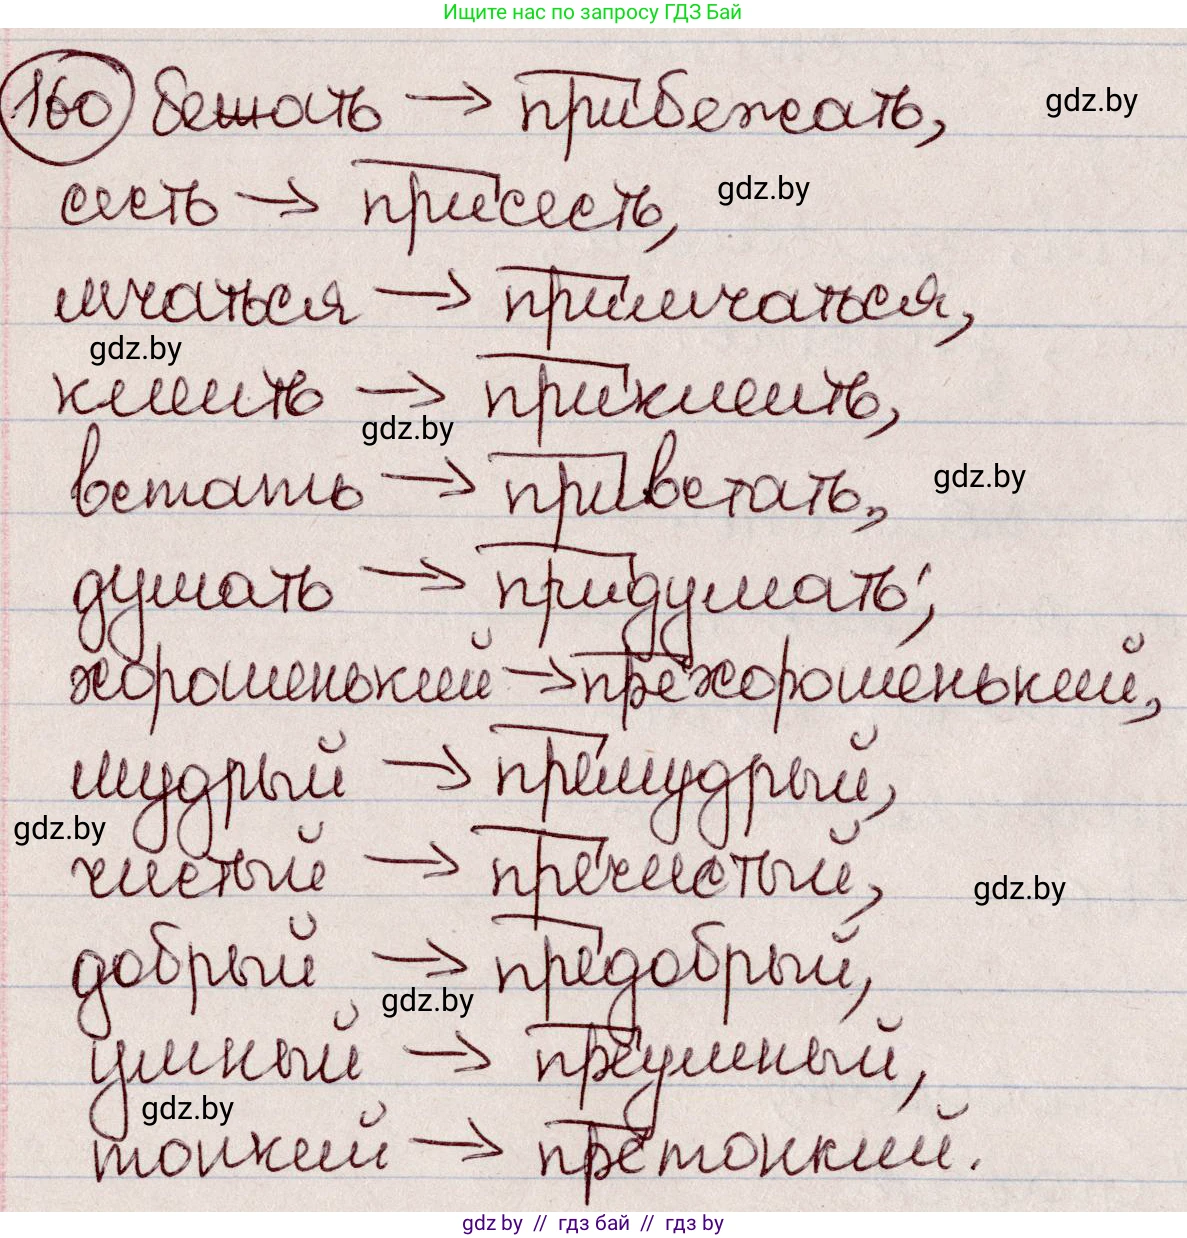 Ищите нас по запросу ГДЗ Бай
160 бешать → прибежать, gdz.by
сесть → присесть, gdz.by
мчаться → примчаться,
gdz.by
клеить → приклеить,
gdz.by
встать → привстать, gdz.by
думать → придумать;
хорошенький → прехорошенький,
мудрый → премудрый,
gdz.by
чистый → пречистый,
gdz.by
добрый → предобрый,
gdz.by
умный → преумный,
gdz.by
тонкий → претонкий.
gdz by // гдз бай // гдз by